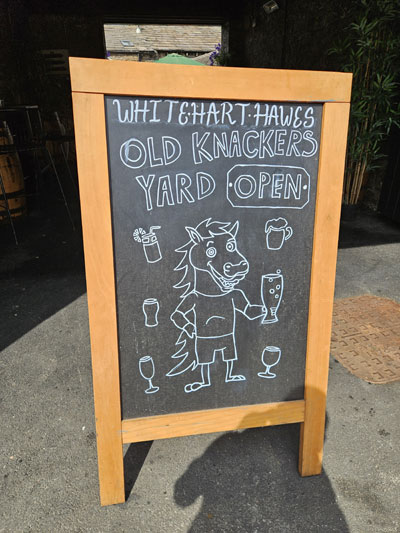 WHITE·HART·HAWES
OLD KNACKERS
YARD ·OPEN·